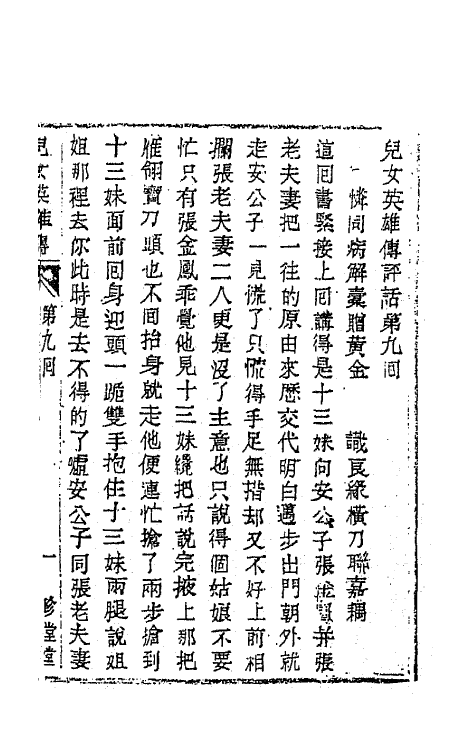 兒女英雄傳評話第九囘
憐同病解囊贈黃金　識良緣橫刀聯嘉耦
這囘書緊接上囘講得是十三妹向安公子張金鳳并張
老夫妻把一往的原由來歷交代明白邁步出門朝外就
走安公子一見慌了只慌得手足無措却又不好上前相
攔張老夫妻二人更是沒了主意也只說得個姑娘不要
忙只有張金鳳乖覺他見十三妹纔把話說完掖上那把
雁翎寶刀頭也不囘抬身就走他便連忙搶了兩步搶到
十三妹面前囘身迎頭一跪雙手抱住十三妹兩腿說姐
姐那裡去你此時是去不得的了噓安公子同張老夫妻
兒女英雄傳　第九囘　一　珍堂堂